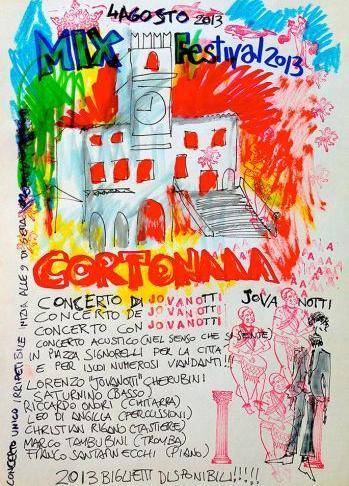 4 AGOSTO 2013
MIX Festival 2013
CORTONAAA
CONCERTO DI JOVANOTTI
CONCERTO DE JOVANOTTI
CONCERTO CON JOVANOTTI
JOVANOTTI
CONCERTO ACUSTICO (NEL SENSO CHE SI SENTE)
IN PIAZZA SIGNORELLI PER LA CITTA
E PER I SUOI NUMEROSI VIANDANTI!!!
LORENZO "JOVANOTTI" CHERUBINI
SATURNINO (BASSO)
RICCARDO ONORI (CHITARRA)
LEO DI ANGILLA (PERCUSSIONI)
CHRISTIAN RIGANO (TASTIERE)
MARCO TAMBURINI (TROMBA)
FRANCO SANTARNECCHI (PIANO)
2013 BIGLIETTI DISPONIBILI!!!!!
CONCERTO UNICO IRRIPETIBILE INIZIA ALLE 9 DI SERA